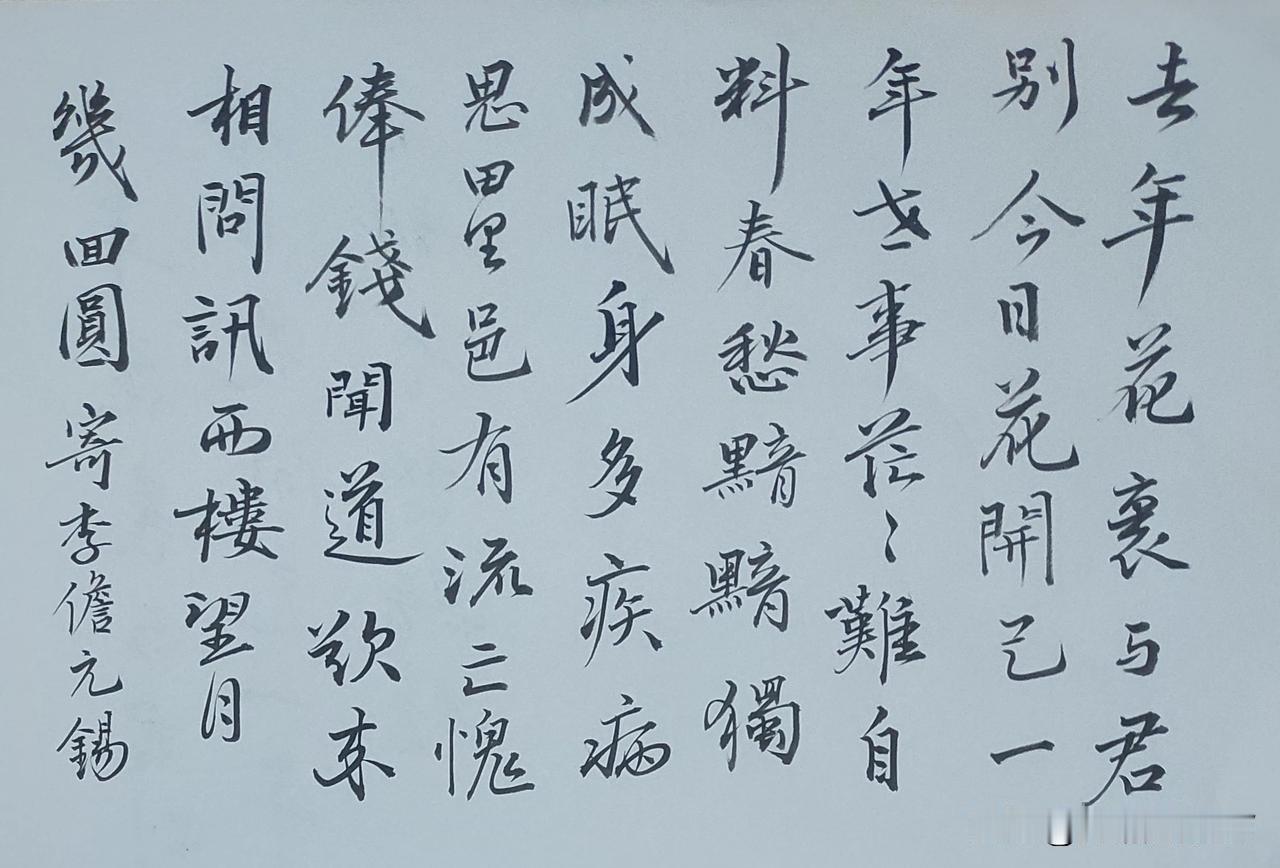 去年花裏与君
别今日花開已一
年世事茫〻難自
料春愁黯黯獨
成眠身多疾病
思田里邑有流亡愧
俸錢聞道欲来
相問訊西樓望月
幾囬圓寄李儋元錫